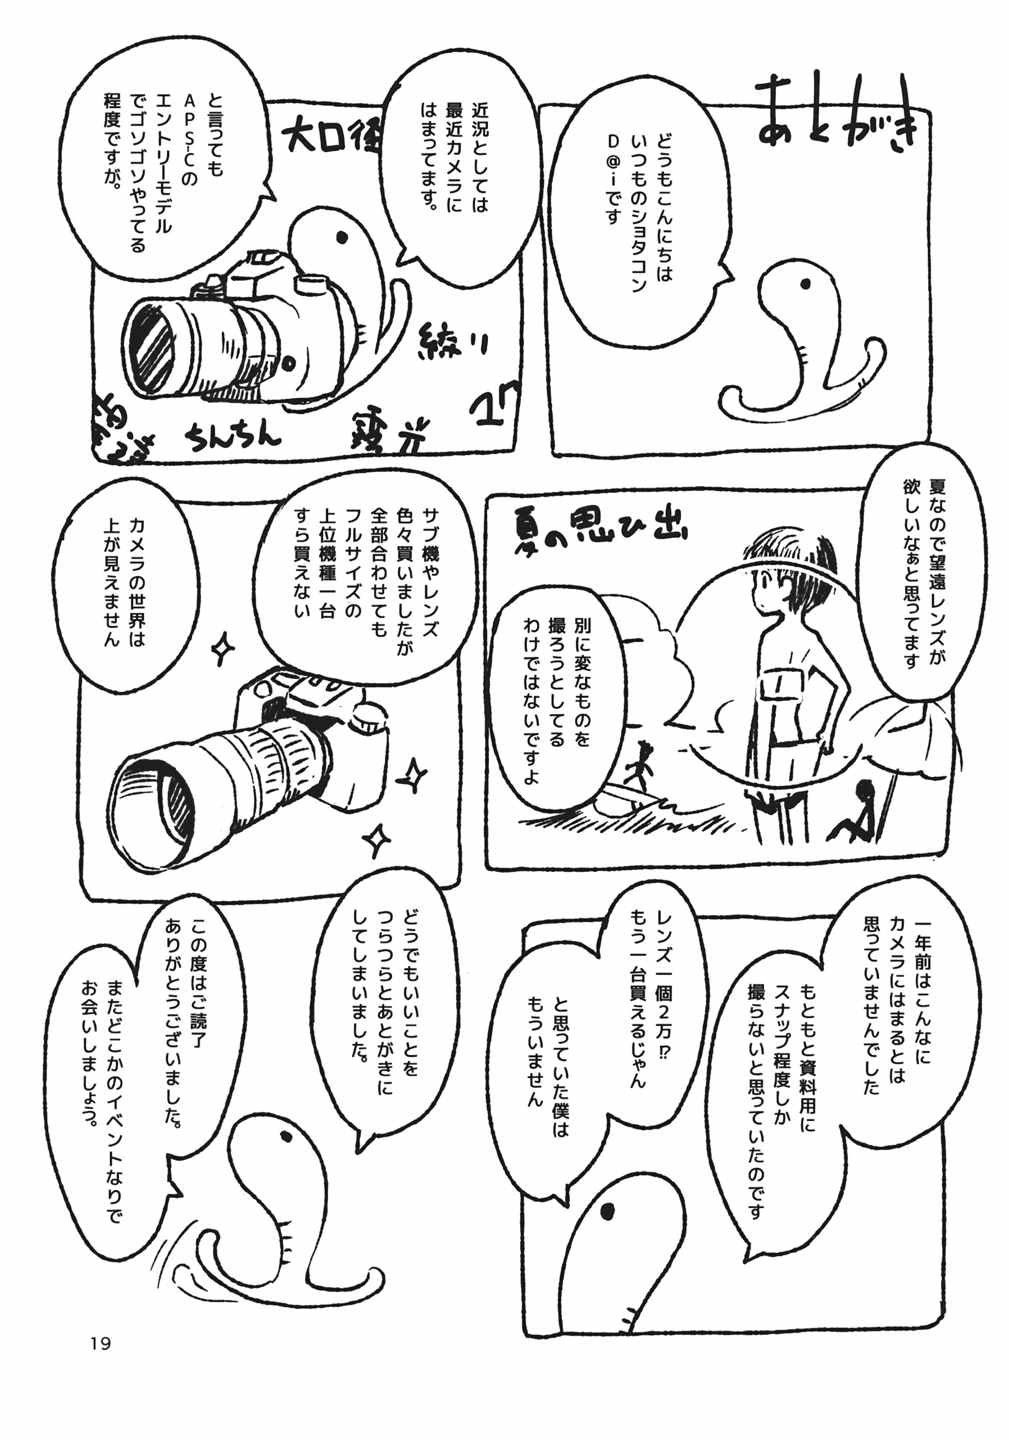 あとがき
どうもこんにちは
いつものショタコン
D@iです
近況としては
最近カメラに
はまってます。
と言っても
APS-Cの
エントリーモデル
でゴソゴソやってる
程度ですが。
大口径
絞り
ちんちん
露光
夏なので望遠レンズが
欲しいなぁと思ってます
夏の思ひ出
別に変なものを
撮ろうとしてる
わけではないですよ
サブ機やレンズ
色々買いましたが
全部合わせても
フルサイズの
上位機種一台
すら買えない
カメラの世界は
上が見えません
一年前はこんなに
カメラにはまるとは
思っていませんでした
もともと資料用に
スナップ程度しか
撮らないと思っていたのです
レンズ一個2万⁉
もう一台買えるじゃん
と思っていた僕は
もういません
どうでもいいことを
つらつらとあとがきに
してしまいました。
この度はご読了
ありがとうございました。
またどこかのイベントなりで
お会いしましょう。
19